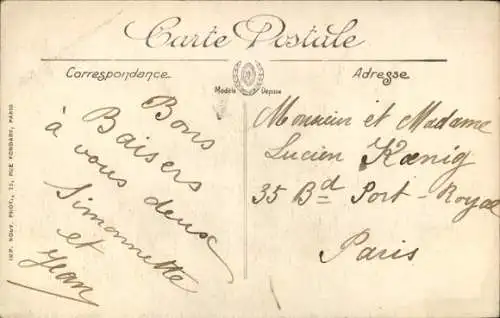 Carte Postale
Correspondance
Adresse
Modèle Déposé
Bons
Baisers
à vous deux
Simonnette
et
Jean
Monsieur et Madame
Lucien Kœnig
35 Bd Port-Royal
Paris
IMP. NOUV. PHOT., 15, RUE FONDARY, PARIS